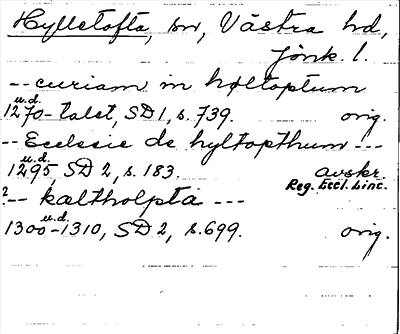 Hylletofta, sn, Västra hd,
Jönk. l.
-- curiam in høltoptum
u.d.
1270-talet, SD 1, s. 739. orig.
-- Ecclesie de hyltopthum ---
u.d.
1295, SD 2, s. 183. avskr.
Reg. Eccl. Linc.
?-- kæltholpta ---
u.d.
1300-1310, SD 2, s. 699. orig.